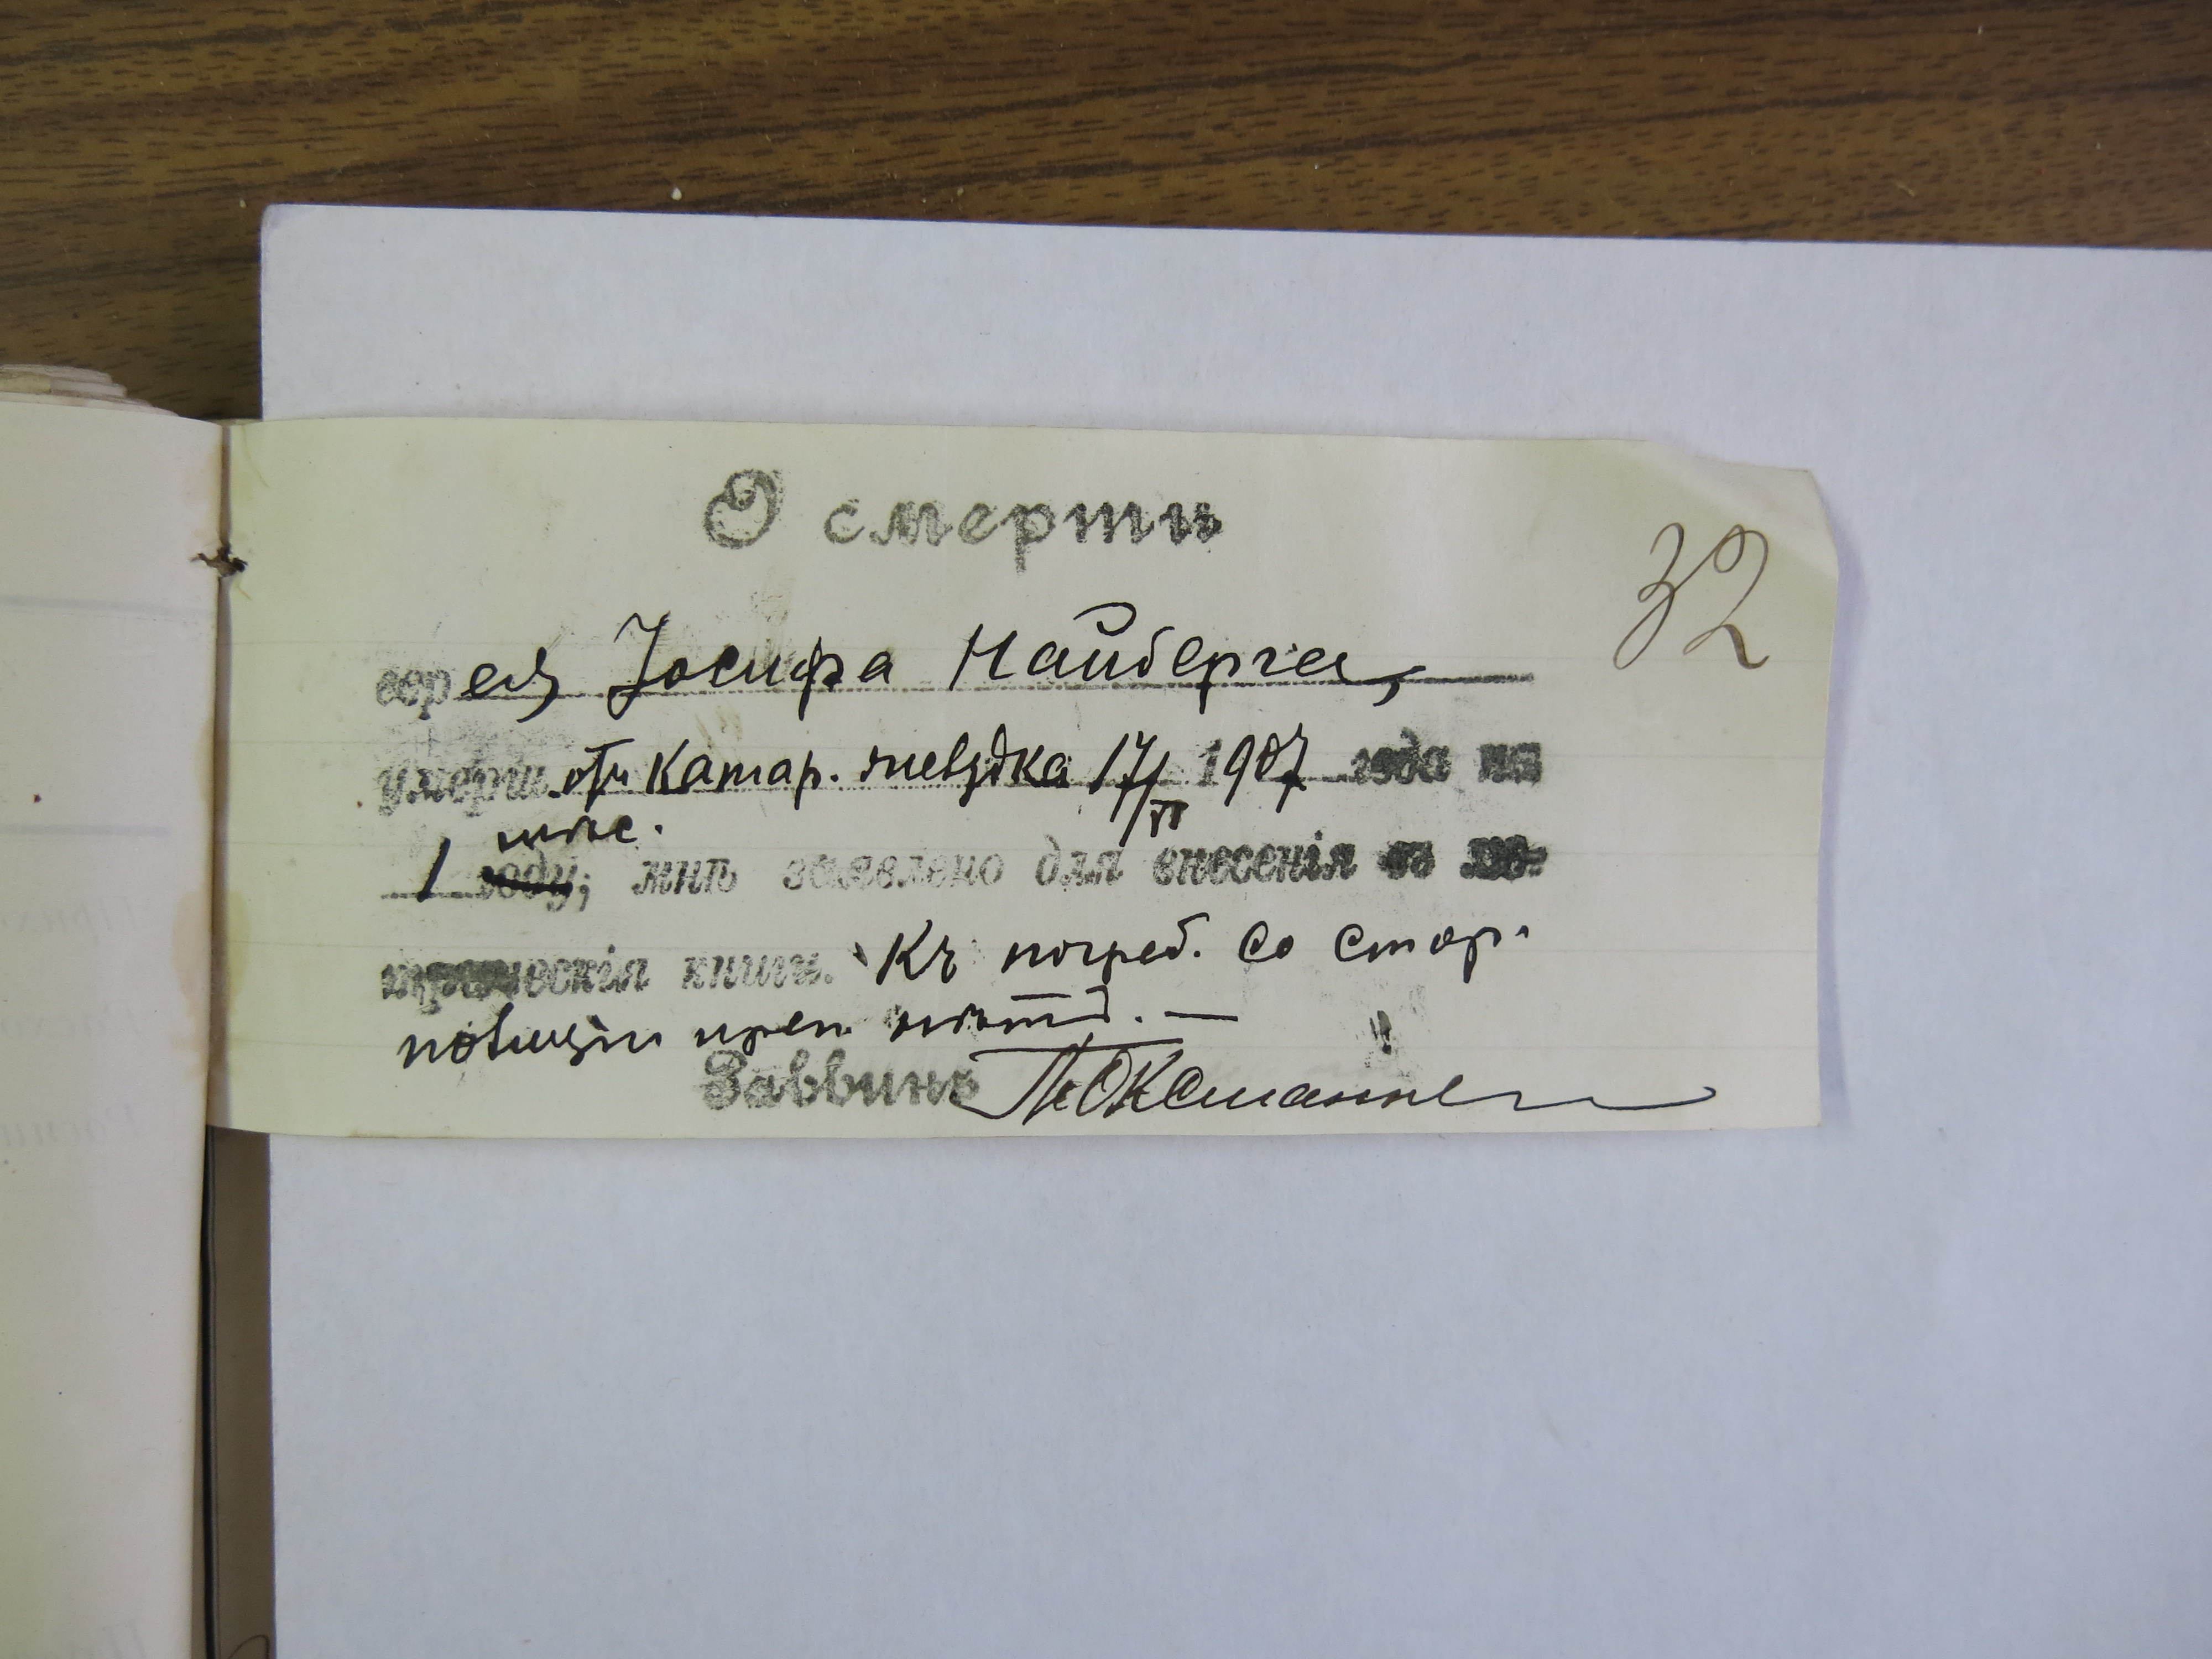 О смерти
32
еврея Іосифа Найберга,
умерш. отъ катар. желудка 17/VI 1907 года на
мѣс.
1 году; мнѣ заявлено для внесенія въ ме-
трическія книги. Къ погреб. со стор.
полиціи преп. нѣтъ. —
Раввинъ